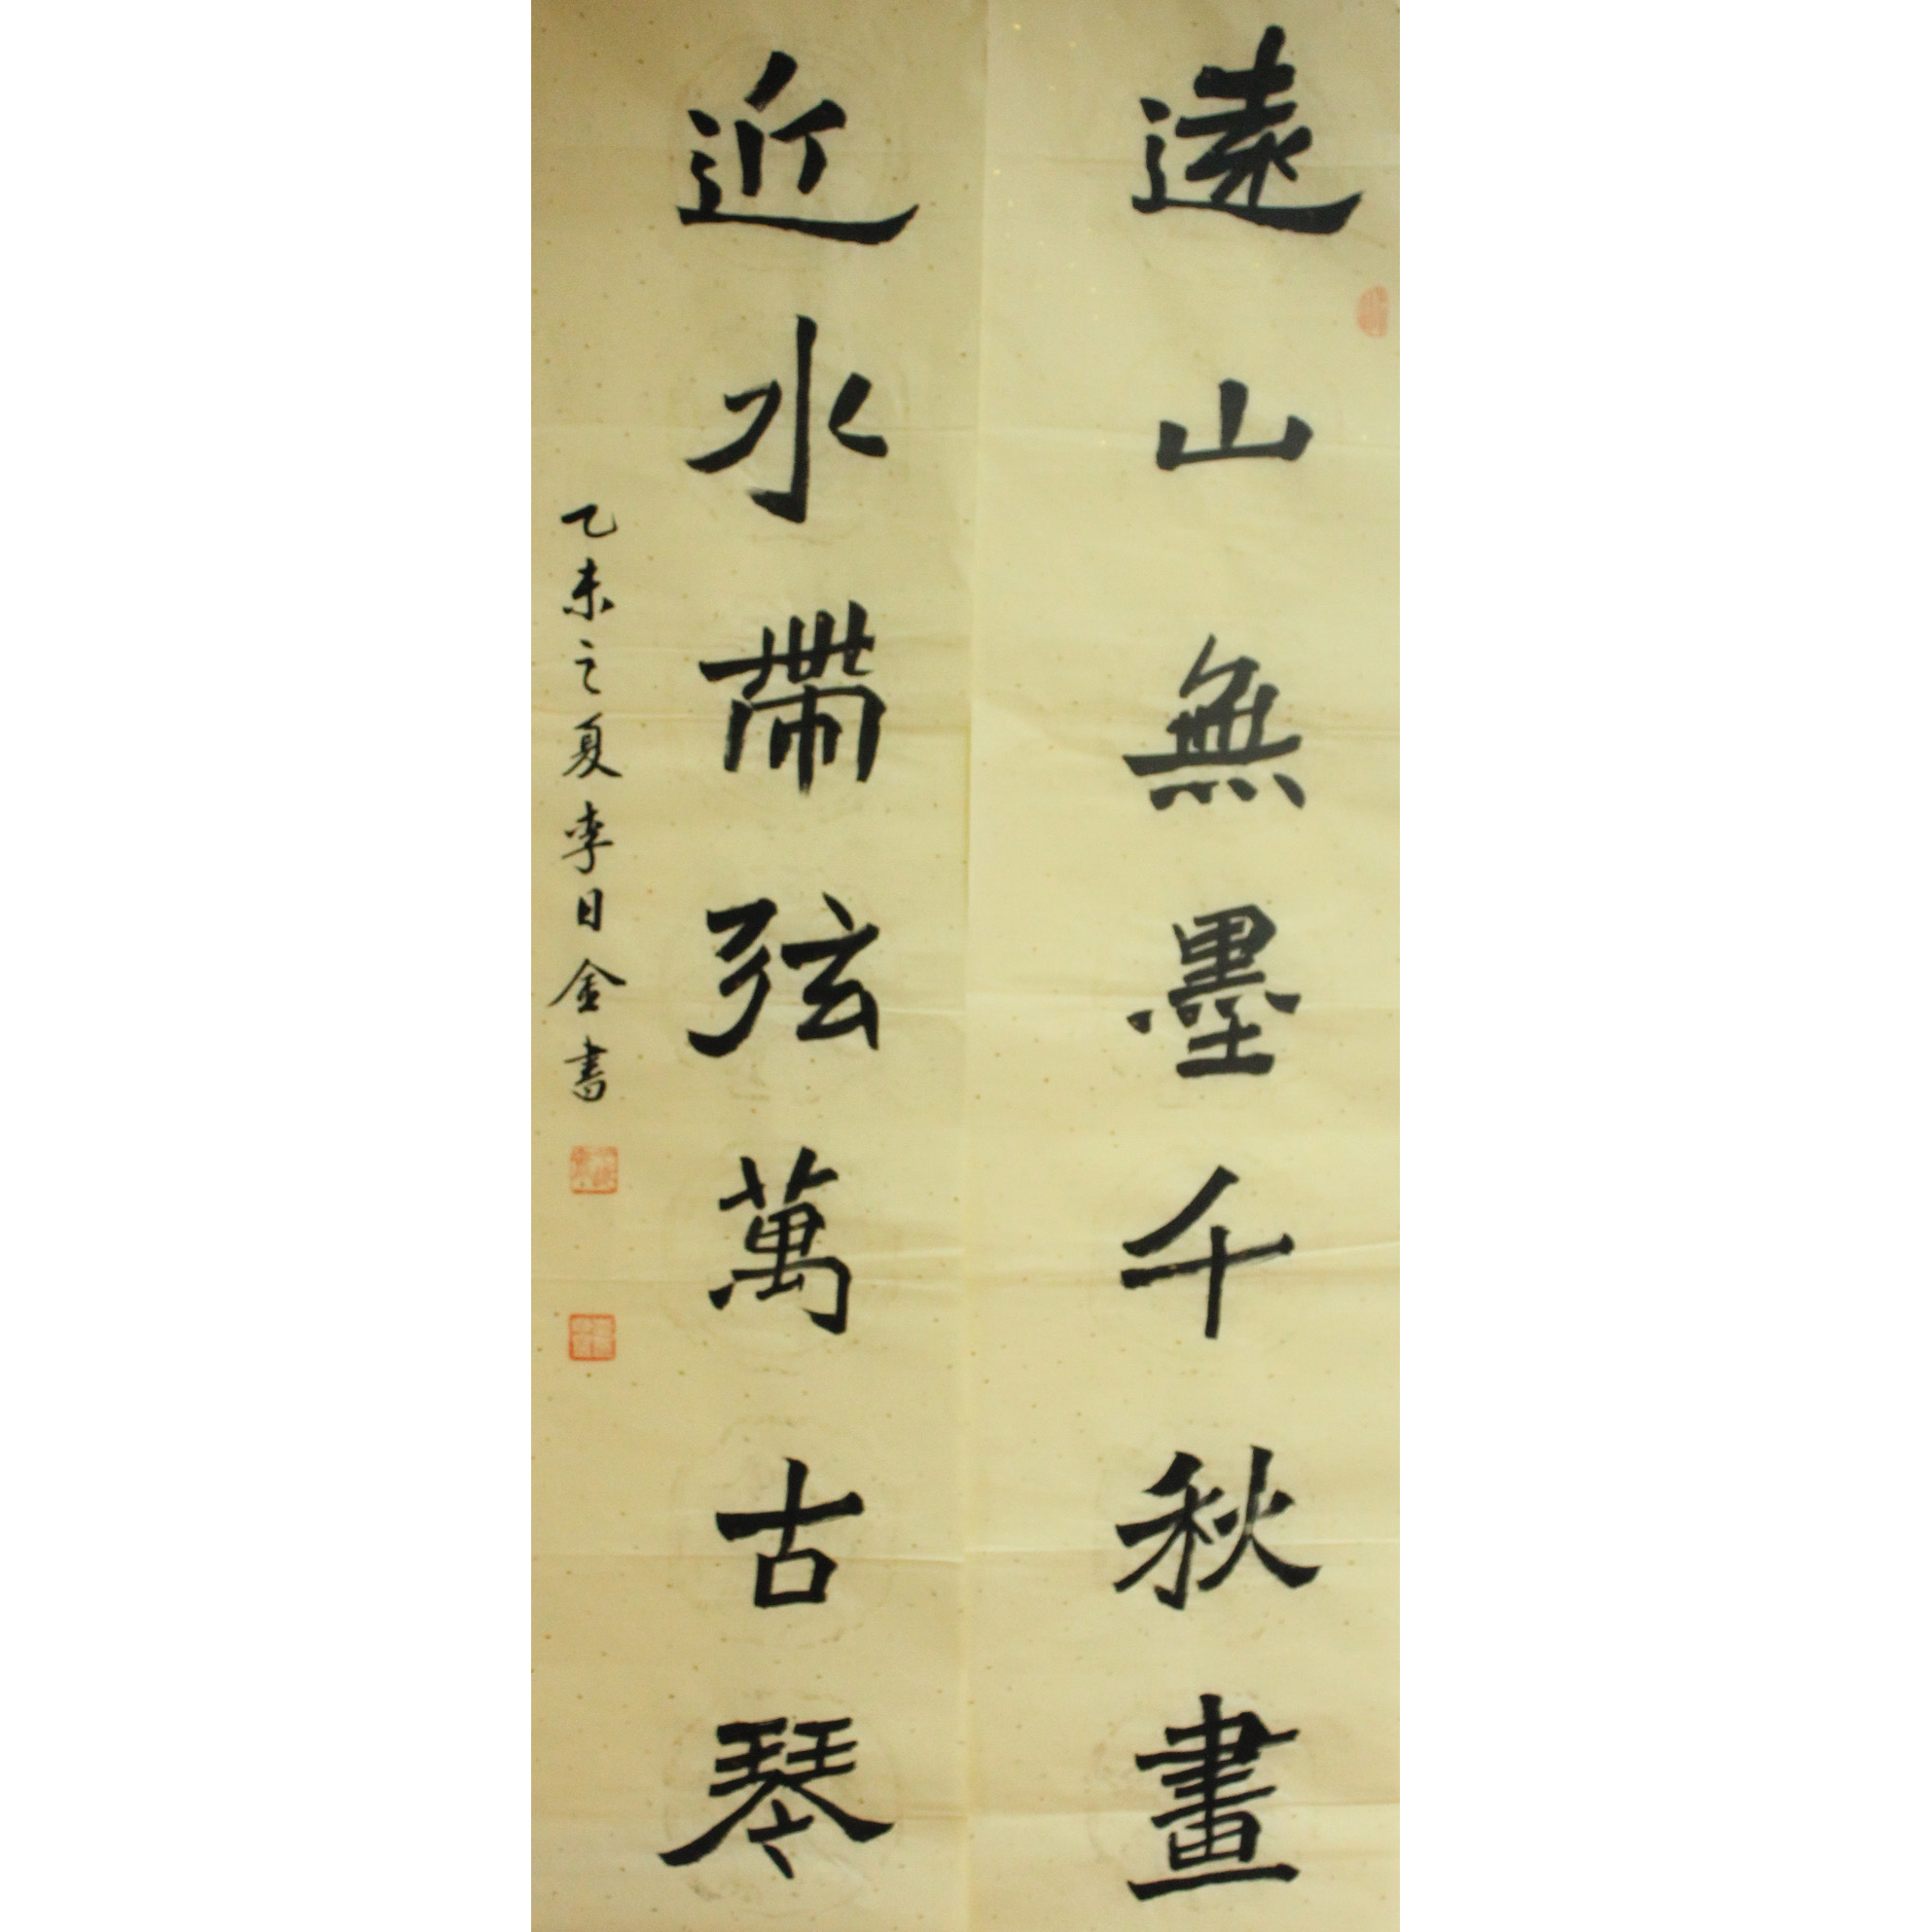 遠山無墨千秋畫
近水帶弦萬古琴
乙未之夏李日金書